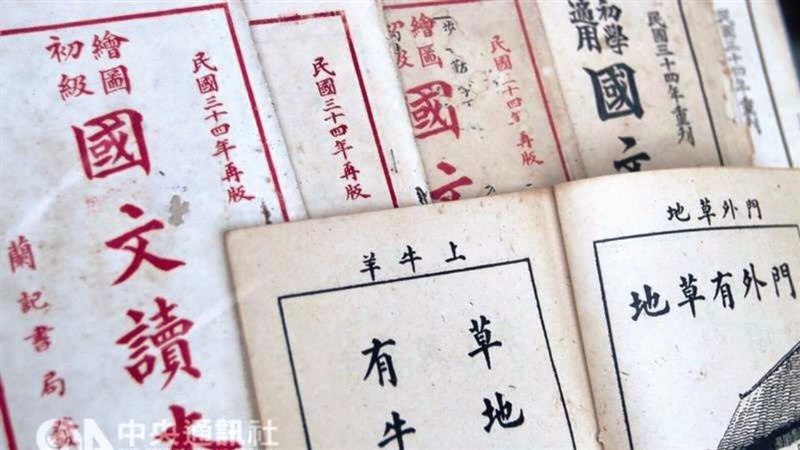 民國三十四年再版
繪圖
初級
國文讀本
蘭記書局
民國三十四年再版
民國三十四年再版
繪圖
國文
民國三十四年重刊
初學
適用
國文
門外草地
門外有草地
上牛羊
草地
有牛
中央通訊社